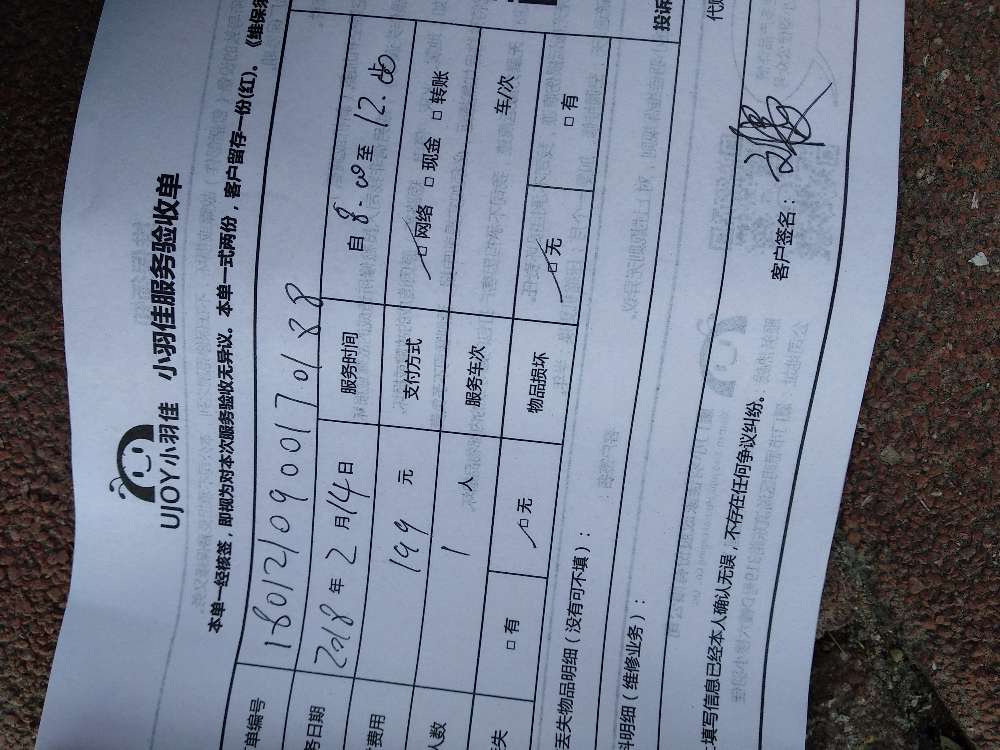 UJOY小羽佳 小羽佳服务验收单
本单一经核签，即视为对本次服务验收无异议。本单一式两份，客户留存一份(红)。《维保
单编号 180121090017 0188
务日期 2018 年 2 月 14 日 服务时间 自 8.00 至 12.00
费用 199 元 支付方式 □网络 □现金 □转账
人数 1 人 服务车次 车/次
失 □有 □无 物品损坏 □无 □有
丢失物品明细（没有可不填）：
料明细（维修业务）： 投诉
填写信息已经本人确认无误，不存在任何争议纠纷。 客户签名：